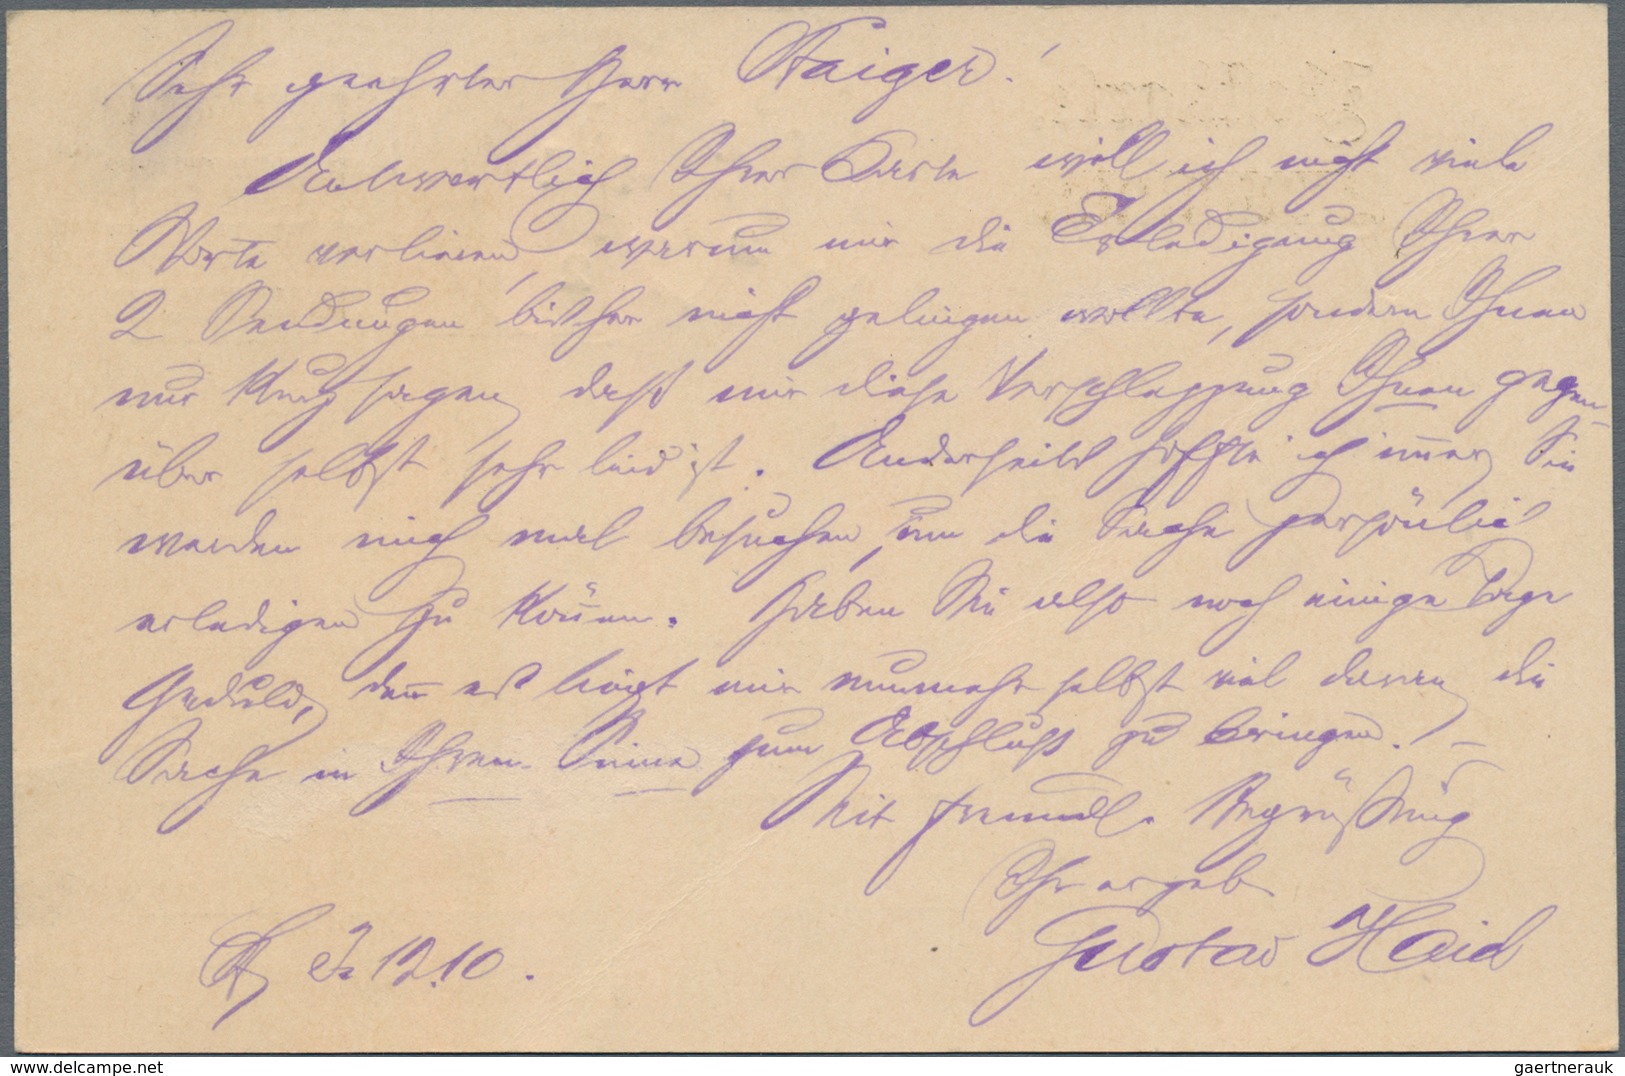 Sehr geehrter Herr Staiger!
Antwortlich Ihrer Karte will ich nicht viele
Worte verlieren, warum mir die Erledigung Ihrer
2 Sendungen bisher nicht gelingen wollte, sondern Ihnen
nur kurz sagen, daß mir diese Verschleppung Ihnen gegen-
über selbst sehr leid ist. Anderseits hoffte ich im̅er, Sie
werden mich mal besuchen, um die Sache persönlich
erledigen zu kön̅en. Haben Sie also noch einige Tage
Geduld, den̅ es liegt mir nunmehr selbst viel daran, die
Sache in Ihrem Sinne zum Abschluß zu bringen. –
Mit freundl. Begrüßung
Ihr ergeb.
Gustav Haid
12.10.
www.delcampe.net
gaertnerauk